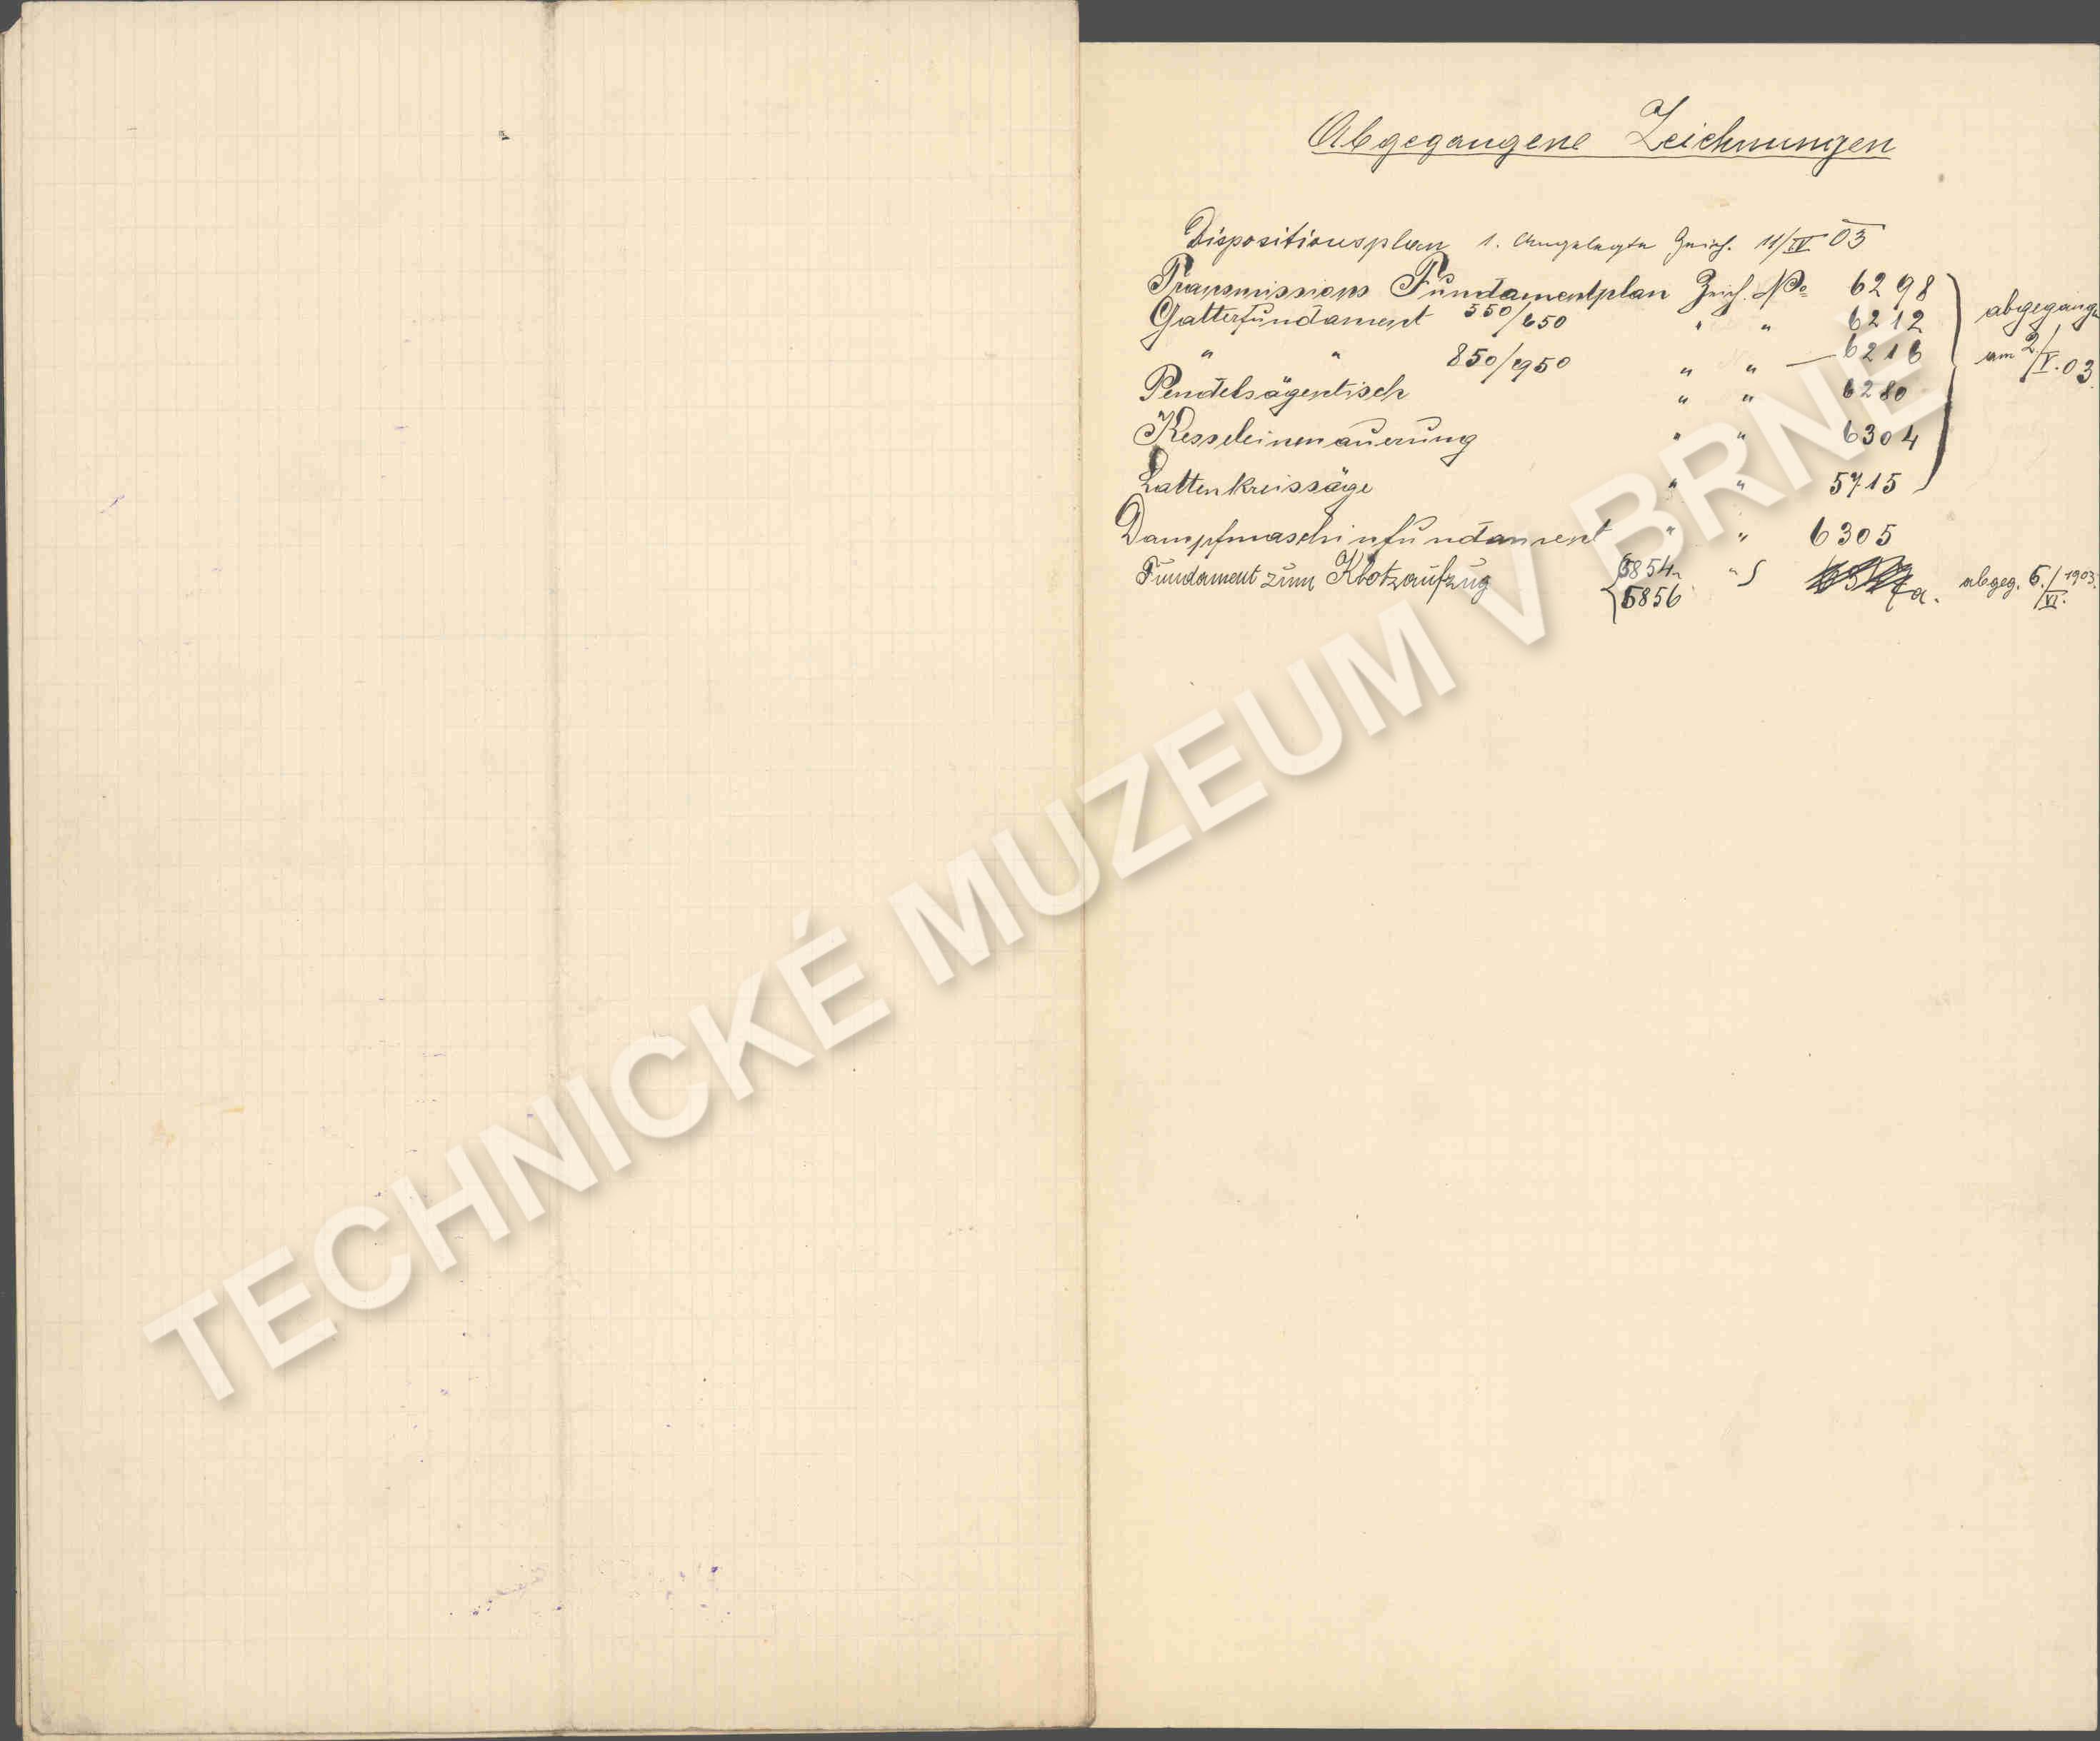 Abgegangene Zeichnungen
Dispositionsplan 1. Zeich. 11/IV 03
Transmissions Fundamentplan Zeich. No 6298
Gatterfundament 550/650 " " 6212
" " 850/950 " " — 6216
abgegange
am 2./V. 03.
Pendelsägentisch " " 6280
Kesseleinmauerung " " 6304
Lattenkreissäge " " 5715
Dampfmaschinfundament " " 6305
Fundament zum Klotzaufzug 6854 a. abgeg. 6./VI. 1903.
6856
TECHNICKÉ MUZEUM V BRNĚ